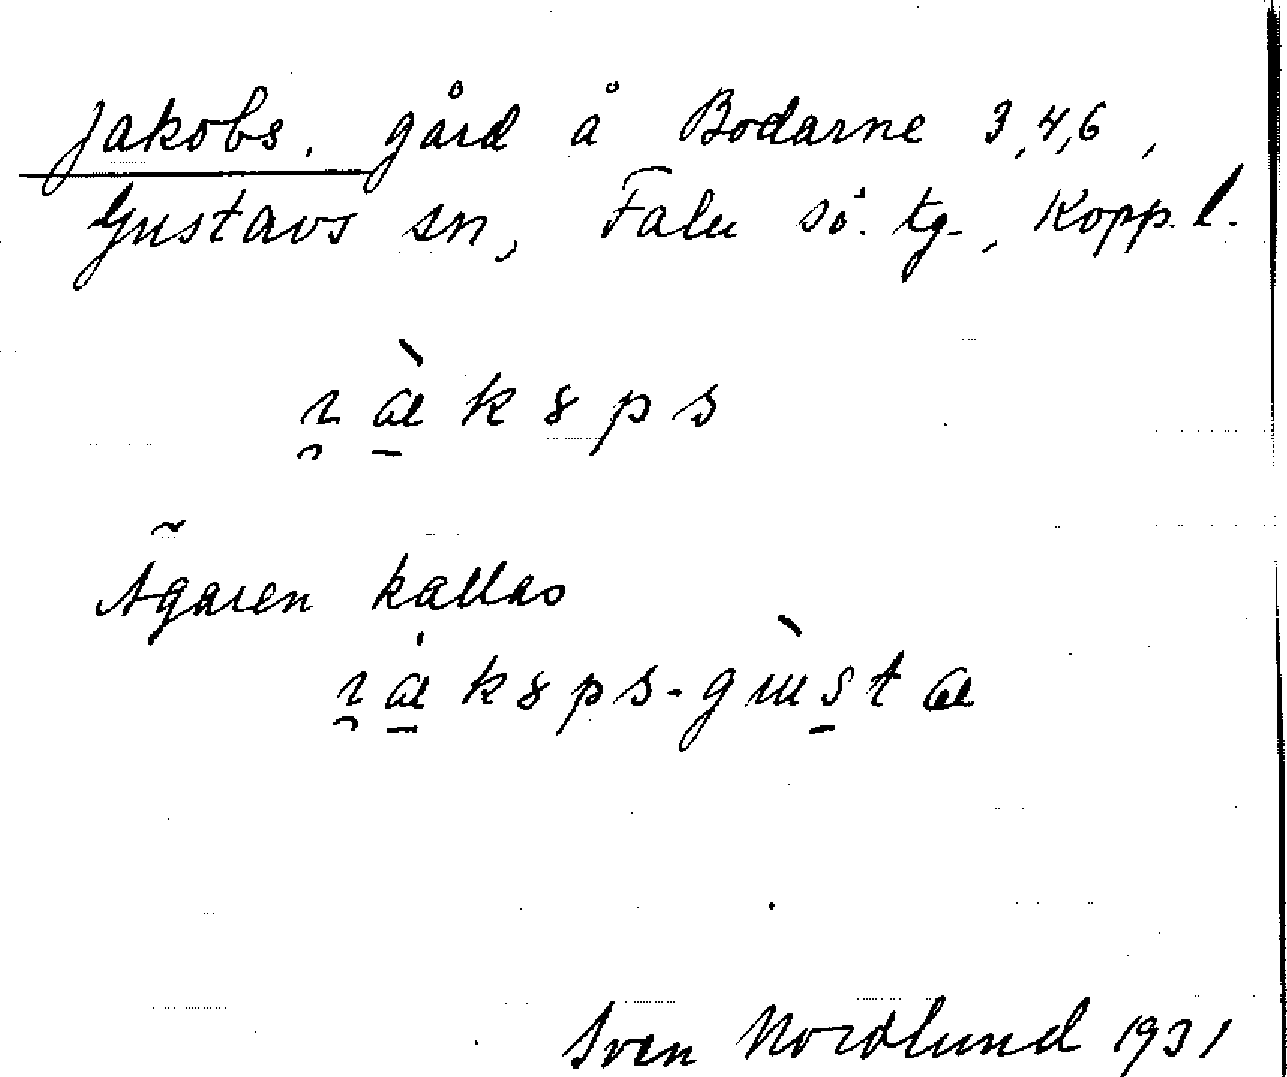 Jakobs, gård å Bodarne 3,4,6,
Gustavs sn, Falu sö. tg., Kopp. l.
Ägaren kallas
Sven Nordlund 1931